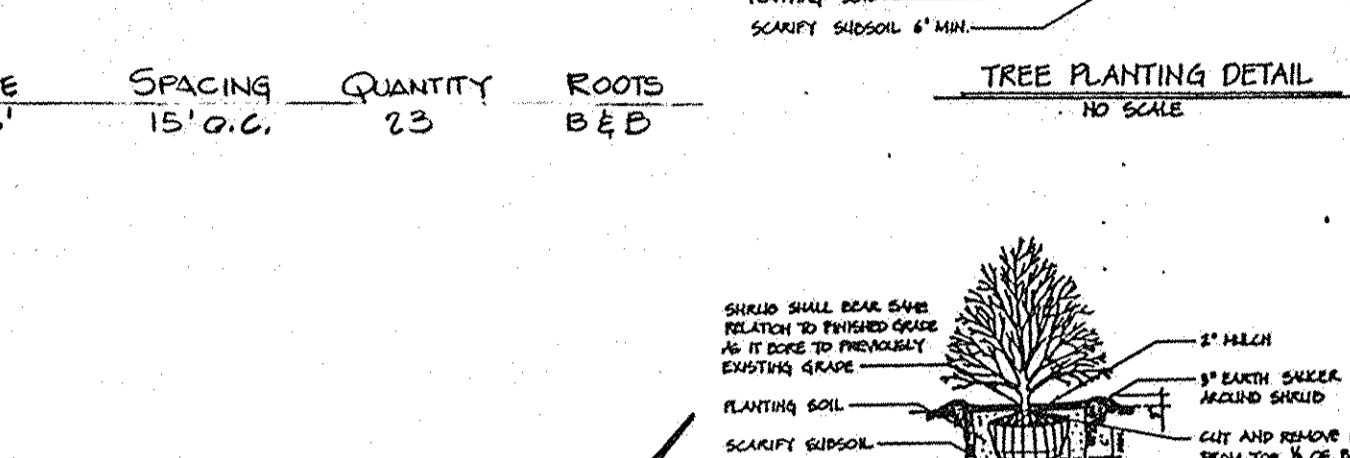 SCARIFY SUBSOIL 6" MIN.
E SPACING QUANTITY ROOTS
15' O.C. 23 B & B
TREE PLANTING DETAIL
NO SCALE
SHRUB SHALL BEAR SAME
RELATION TO FINISHED GRADE
AS IT BORE TO PREVIOUSLY
EXISTING GRADE
PLANTING SOIL
SCARIFY SUBSOIL
2" MULCH
3" EARTH SAUCER
AROUND SHRUB
CUT AND REMOVE
FROM TOP ⅓ OF B